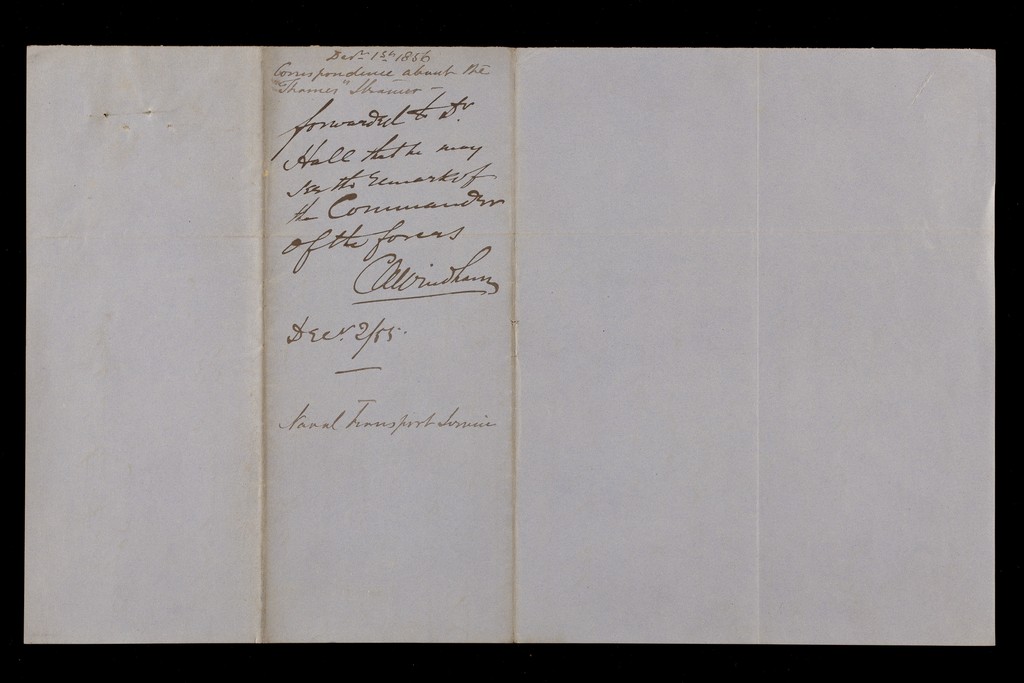 Decr. 1st 1856
Correspondence about the
"Thames" Steamer -
forwarded to Dr.
Hall that he may
see the remarks of
the Commander
of the forces
CAWindham
Decr. 2/55.
Naval Transport Service